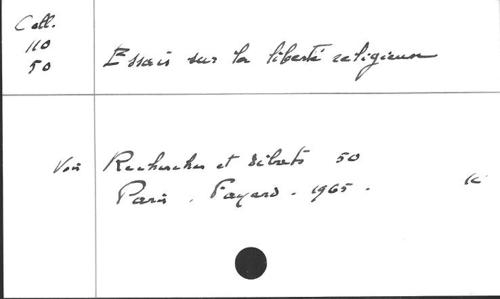 Coll.
110
50
Essais sur la liberté religieuse
Voir Recherches et Débats 50
Paris. Fayard. 1965.